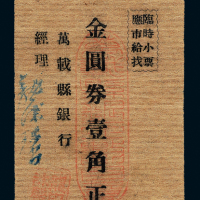 臨時小票
應市給找
金圓券壹角正
萬載縣銀行
經理